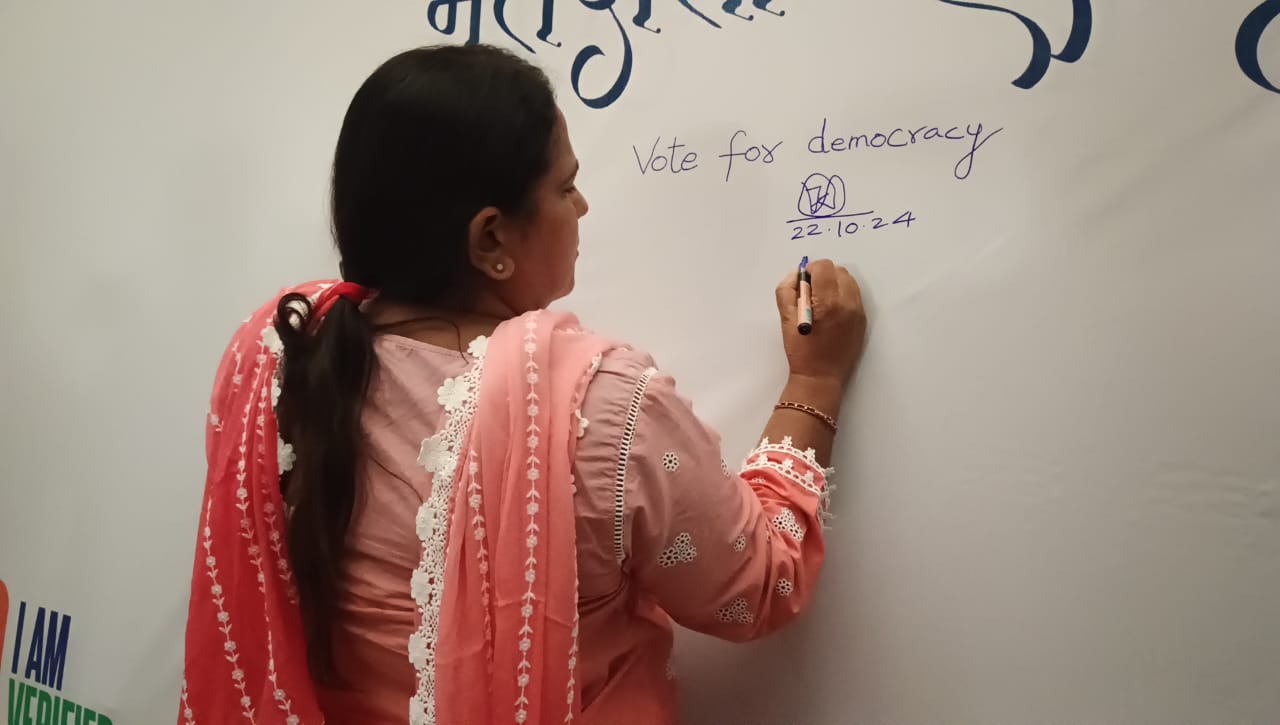 Vote for democracy
22.10.24
I AM
VERIFIED